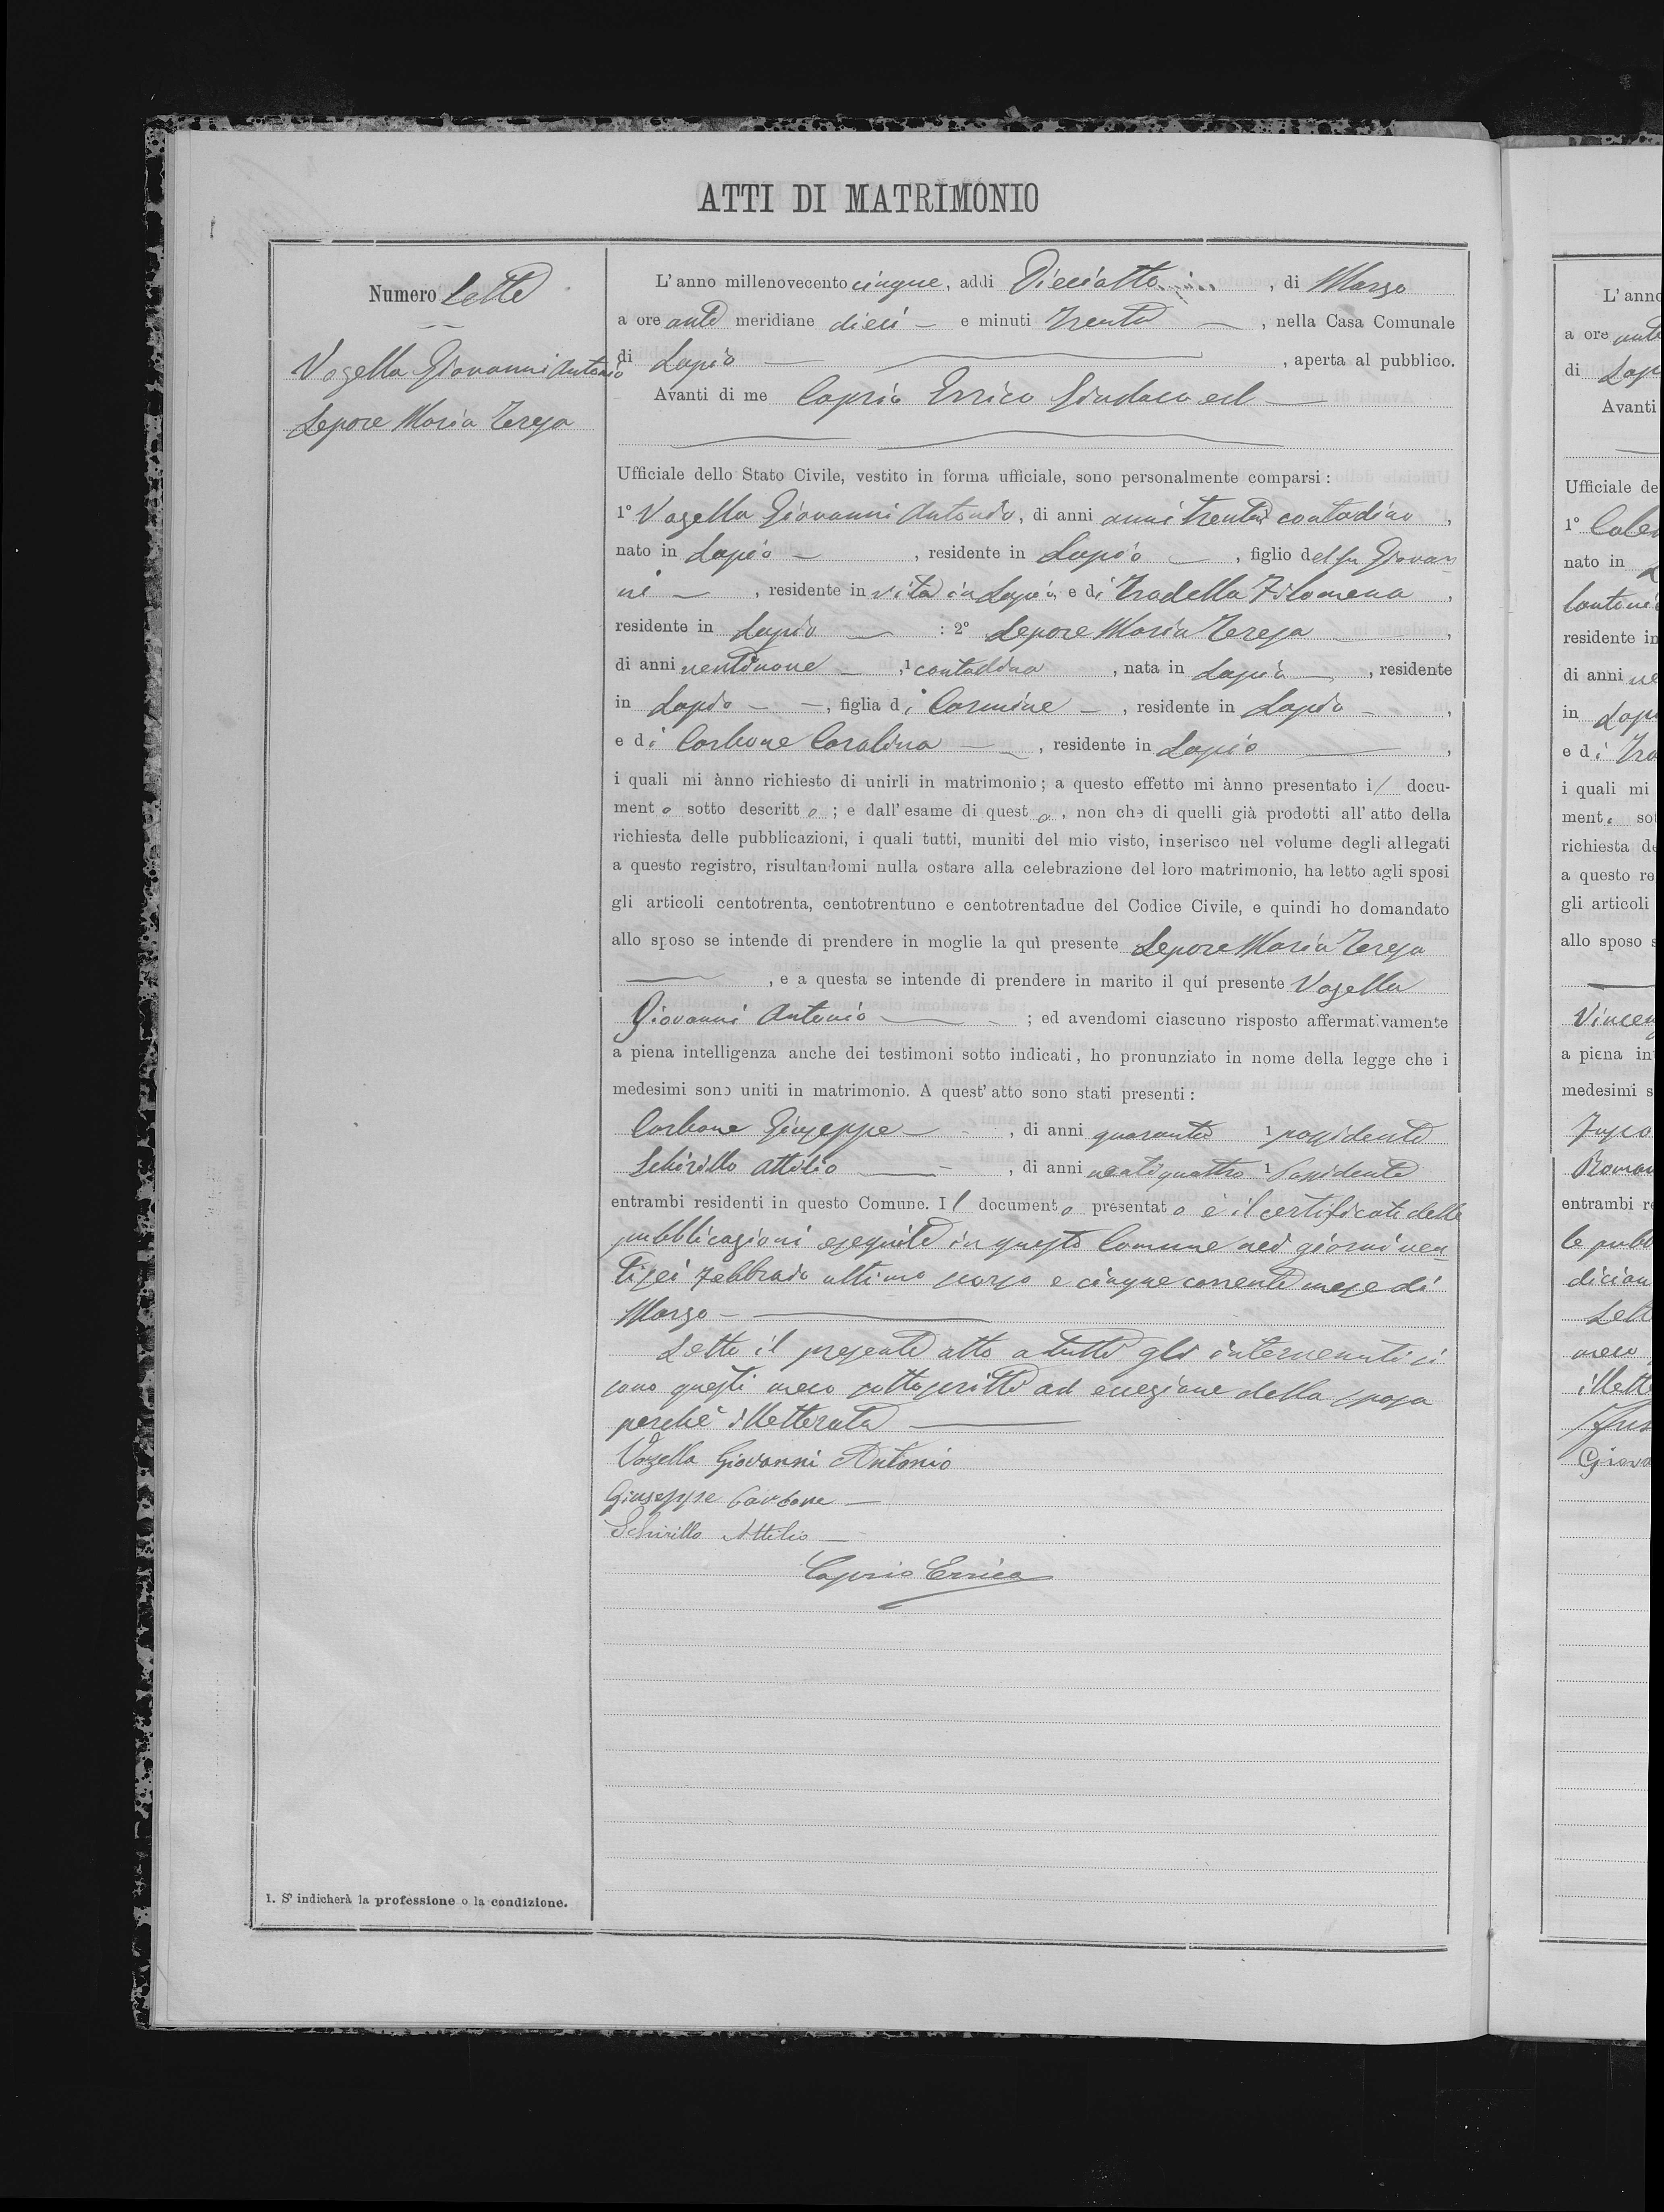 ATTI DI MATRIMONIO
Numero Sette
Vozella Giovanni Antonio
Lepore Maria Teresa
1. Si indicherà la professione o la condizione.
L'anno millenovecento cinque, addi Dieciotto, di Marzo
a ore ante meridiane dieci e minuti Trenta, nella Casa Comunale
di Lapio, aperta al pubblico.
Avanti di me Caprio Errico Sindaco ed
Ufficiale dello Stato Civile, vestito in forma ufficiale, sono personalmente comparsi:
1° Vozella Giovanni Antonio, di anni anni trenta contadino,
nato in Lapio, residente in Lapio, figlio del fu Giovan
ni, residente in vita in Lapio, e di Tradella Filomena,
residente in Lapio: 2° Lepore Maria Teresa,
di anni ventinove, 1 contadina, nata in Lapio, residente
in Lapio, figlia di Carmine, residente in Lapio,
e di Carbone Carolina, residente in Lapio,
i quali mi ànno richiesto di unirli in matrimonio; a questo effetto mi ànno presentato il docu-
mento sotto descritto; e dall'esame di questo, non che di quelli già prodotti all'atto della
richiesta delle pubblicazioni, i quali tutti, muniti del mio visto, inserisco nel volume degli allegati
a questo registro, risultandomi nulla ostare alla celebrazione del loro matrimonio, ha letto agli sposi
gli articoli centotrenta, centotrentuno e centotrentadue del Codice Civile, e quindi ho domandato
allo sposo se intende di prendere in moglie la quì presente Lepore Maria Teresa
, e a questa se intende di prendere in marito il quí presente Vozella
Giovanni Antonio; ed avendomi ciascuno risposto affermativamente
a piena intelligenza anche dei testimoni sotto indicati, ho pronunziato in nome della legge che i
medesimi sono uniti in matrimonio. A quest'atto sono stati presenti:
Carbone Giuseppe, di anni quaranta 1 possidente
Schirillo Attilio, di anni ventiquattro 1 Possidente
entrambi residenti in questo Comune. Il documento presentato è il certificato delle
pubblicazioni eseguite in questo Comune nei giorni ven
tisei Febbraio ultimo scorso e cinque corrente mese di
Marzo
Letto il presente atto a tutti gli intervenuti si
sono questi meco sottoscritti ad eccezione della sposa
perchè illetterata
Vozella Giovanni Antonio
Giuseppe Carbone
Schirillo Attilio
Caprio Errico
L'anno
a ore ante
di Lap
Avanti
Ufficiale de
1°
nato in
residente in
di anni
in Lap
e di Tra
i quali mi
mento so
richiesta de
a questo re
gli articoli
allo sposo s
Vincen
a piena in
medesimi s
Roman
entrambi re
le pubb
dician
Lett
meco
illette
Giova